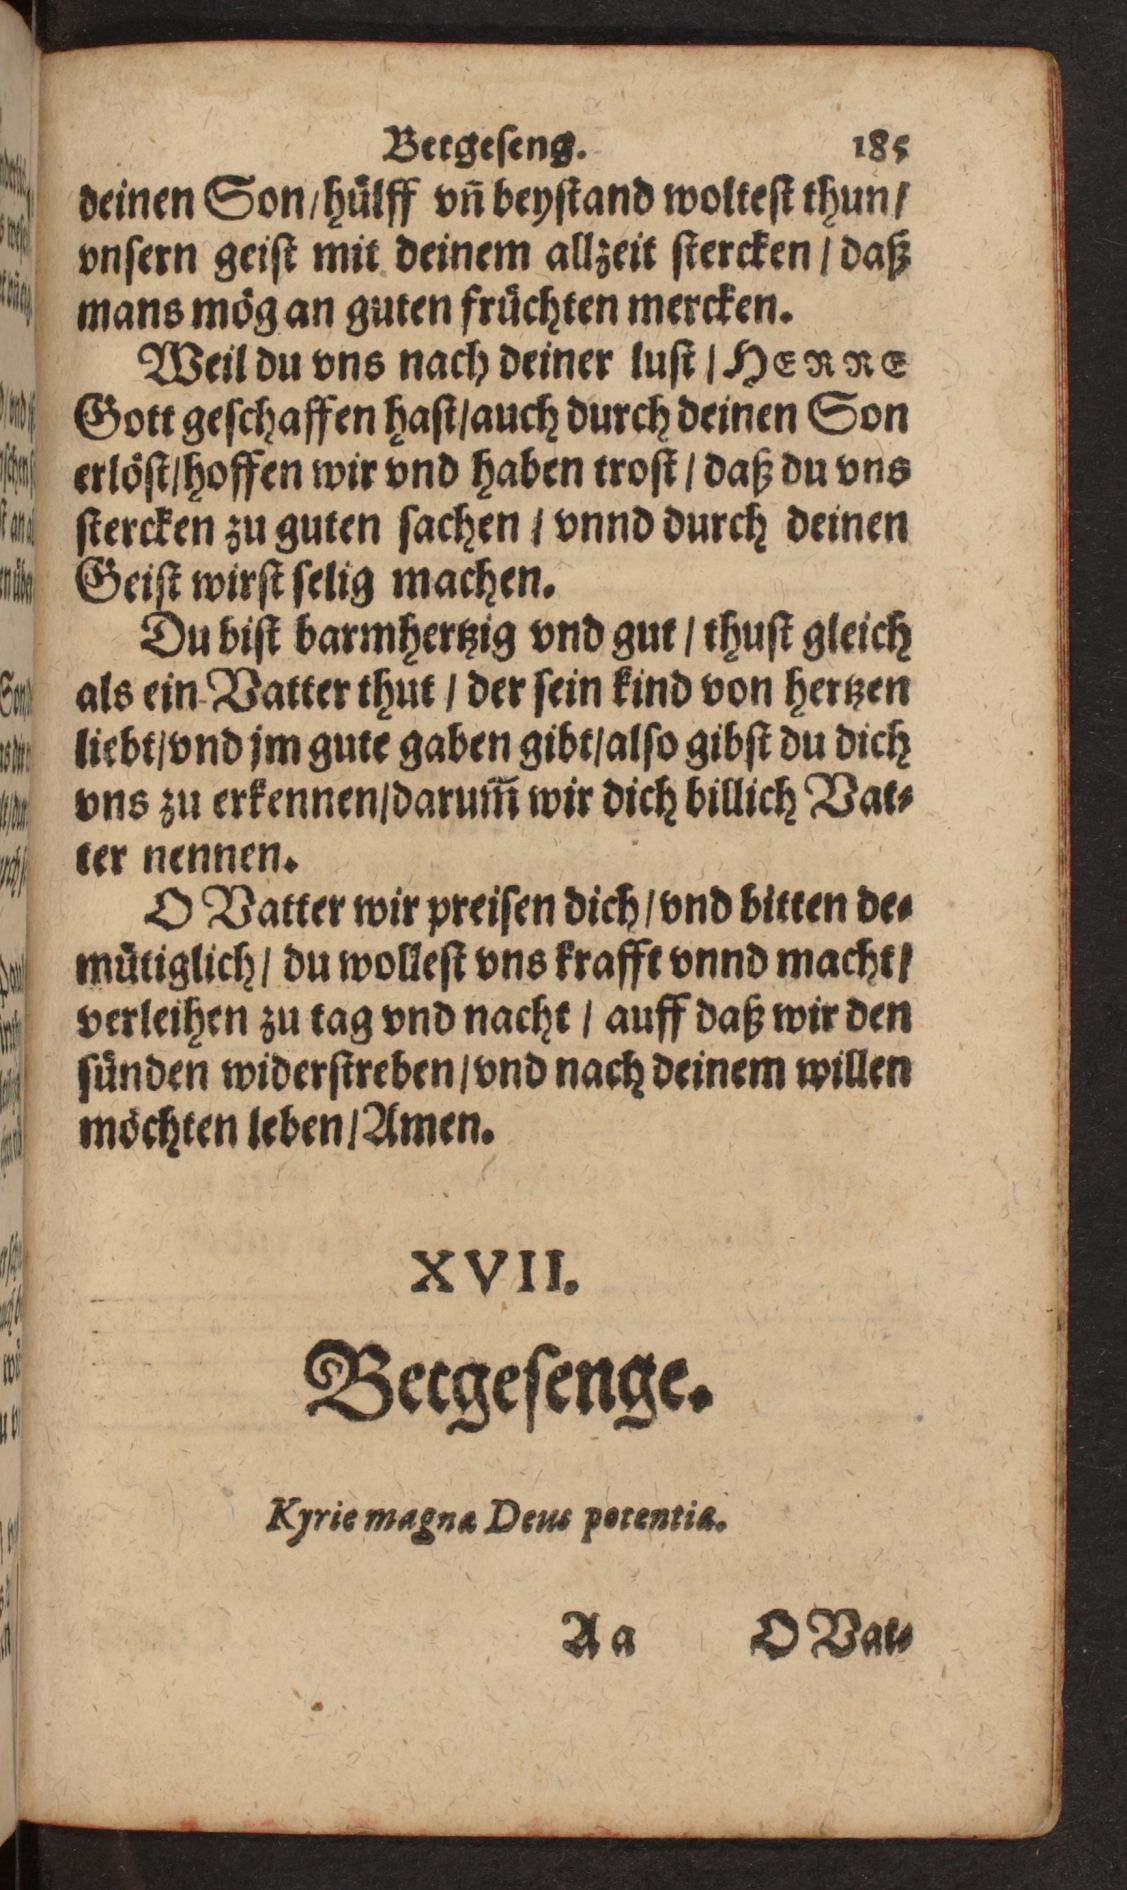 Betgeseng. 185
deinen Son/hülff vñ beystand woltest thun/
vnsern geist mit deinem allzeit stercken / daß
mans mög an guten früchten mercken.
Weil du vns nach deiner lust / HERRE
Gott geschaffen hast/auch durch deinen Son
erlöst/hoffen wir vnd haben trost / daß du vns
stercken zu guten sachen / vnnd durch deinen
Geist wirst selig machen.
Du bist barmhertzig vnd gut / thust gleich
als ein Vatter thut / der sein kind von hertzen
liebt/vnd jm gute gaben gibt/also gibst du dich
vns zu erkennen/darum̃ wir dich billich Vat-
ter nennen.
O Vatter wir preisen dich/vnd bitten de-
mütiglich/ du wollest vns krafft vnnd macht/
verleihen zu tag vnd nacht / auff daß wir den
sünden widerstreben/vnd nach deinem willen
möchten leben/Amen.
XVII.
Betgesenge.
Kyrie magnæ Deus potentiæ.
Aa O Vat-